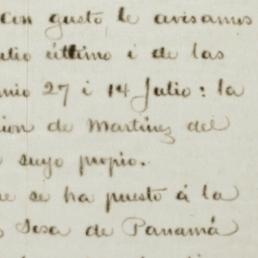 Con gusto le avisamos
ulio último i de las
nio 27 i 14 Julio: la
ion de Martinez del
suyo propio.
e se ha puesto á la
Sosa de Panamá